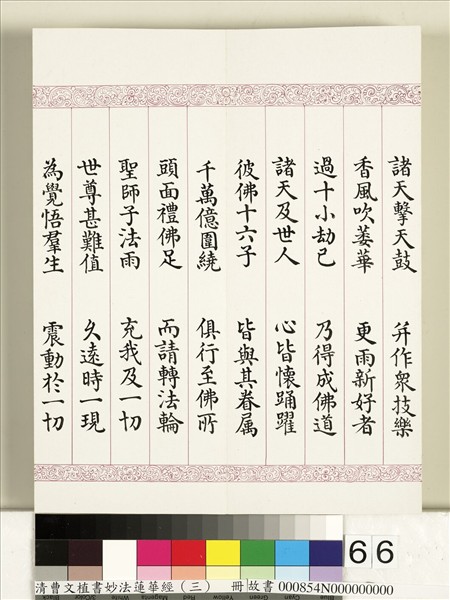 諸天擊天鼓　并作眾技樂
香風吹萎華　更雨新好者
過十小劫已　乃得成佛道
諸天及世人　心皆懷踊躍
彼佛十六子　皆與其眷属
千萬億圍繞　俱行至佛所
頭面禮佛足　而請轉法輪
聖師子法雨　充我及一切
世尊甚難值　久遠時一現
為覺悟羣生　震動於一切
66
清曹文植書妙法蓮華經（三）　冊 故書 000854N000000000